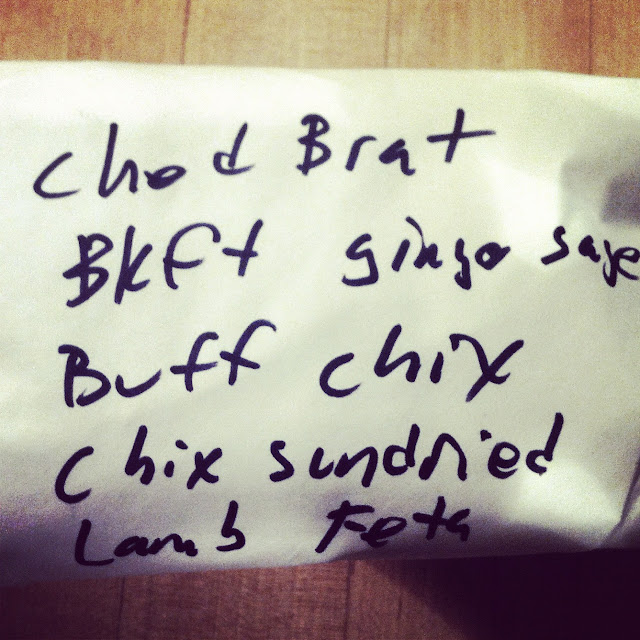 Chod Brat
Bkft ginge sage
Buff chix
Chix sundried
Lamb Feta